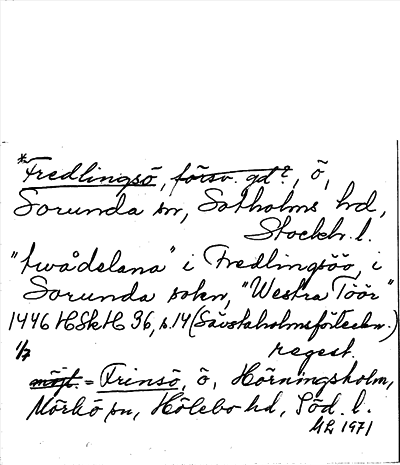 *Fredlingsö, försv. gd?, ö,
Sorunda sn, Sotholms hd,
Stockh. l.
"twådelana" i Fredlingsöö, i
Sorunda sokn, "Westra Töör"
1446 HSkH 36, s. 14 (Sävstaholmsförteckn.)
1/7 regest.
möjl. = Frinsö, ö, Hörningsholm,
Mörkö sn, Hölebo hd, Söd. l.
1971